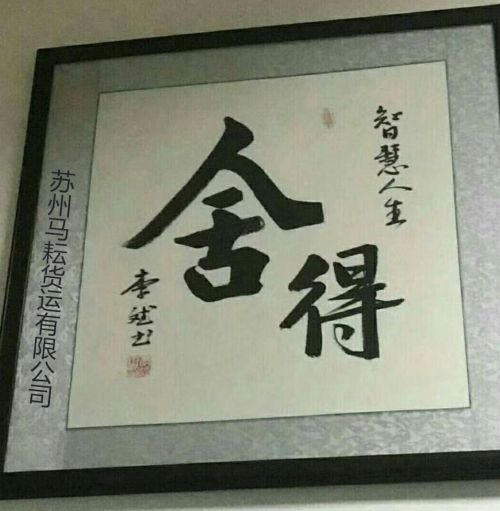 智慧人生
舍得
李斌书
苏州马耘货运有限公司